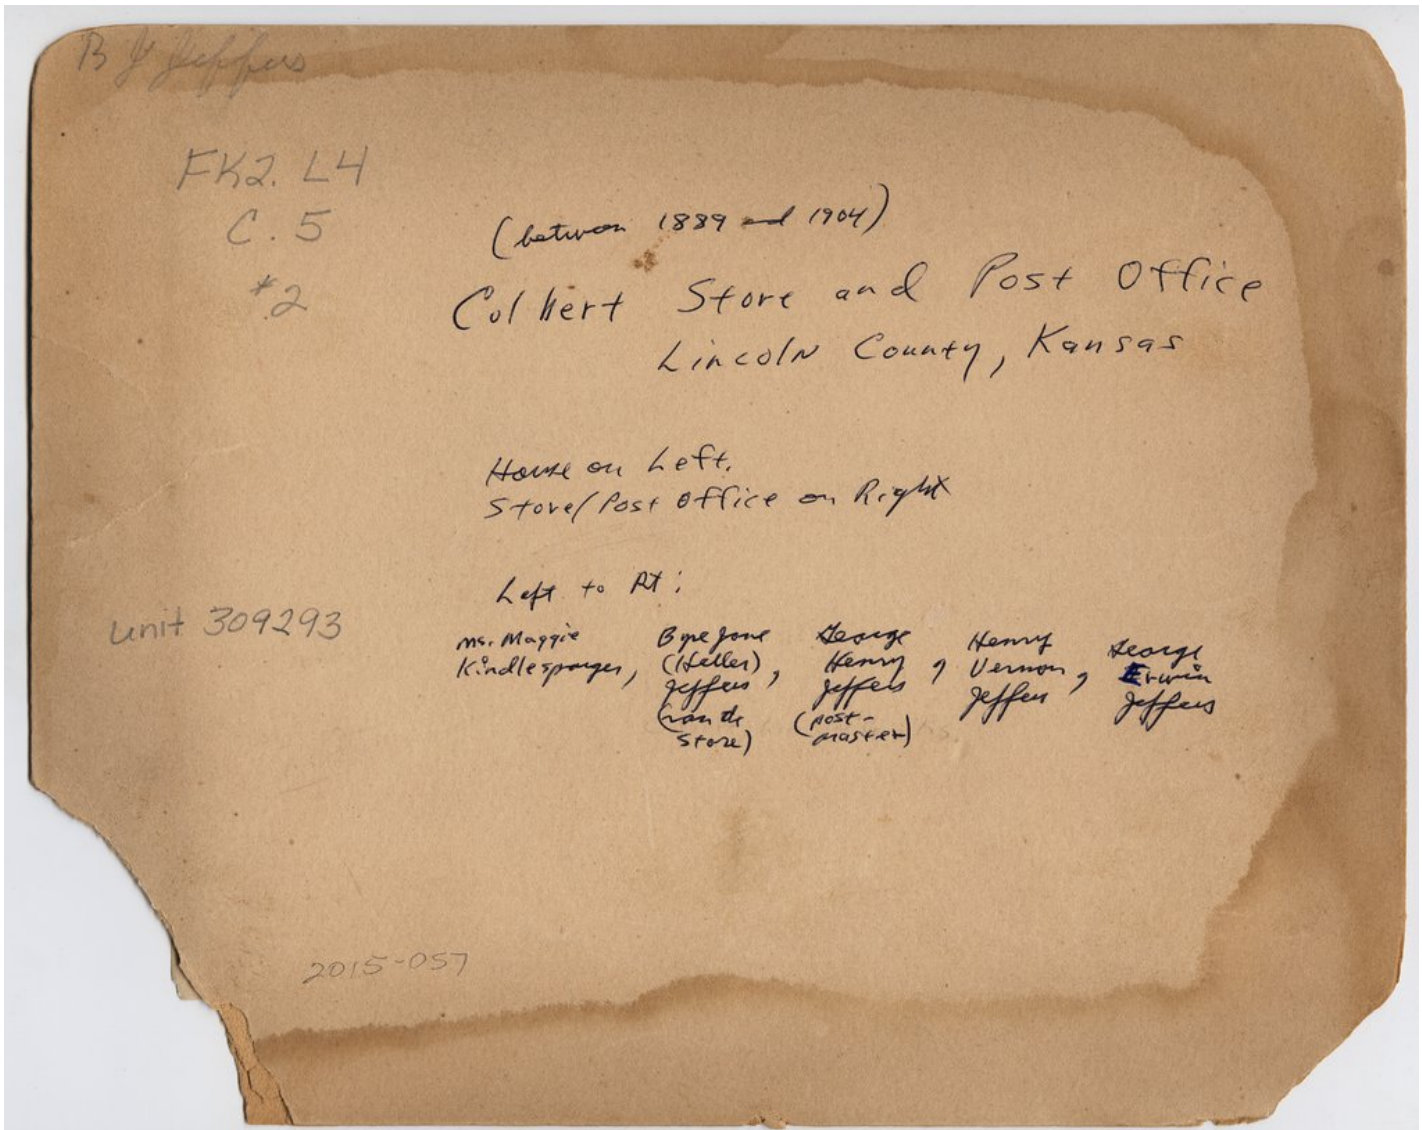 B J Jeffers
FK2. L4
C. 5
#2
(between 1889 and 1904)
Colbert Store and Post Office
Lincoln County, Kansas
House on Left.
Store/Post Office on Right
Left to Rt:
unit 309293
Ms. Maggie
Kindlesparger,
Jane
(Heller)
Jeffers,
(ran the
store)
George
Henry
Jeffers,
(post-
master)
Henry
Vernon,
Jeffers
George
Erwin
Jeffers
2015-057